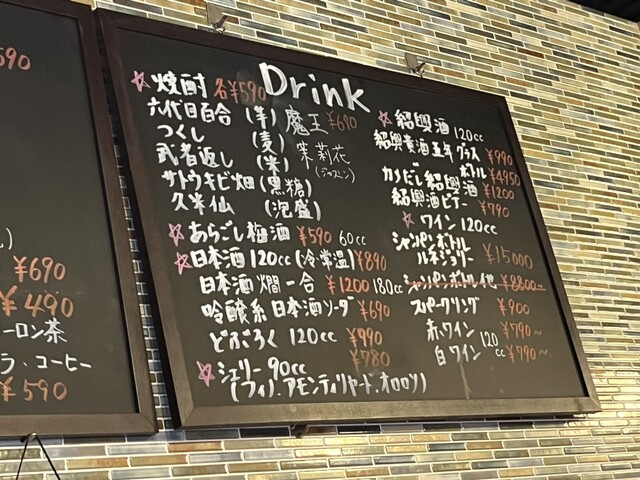 590
¥690
¥490
ーロン茶
ラ・コーヒー
¥590
Drink
☆焼酎 各¥590
六代目百合 (芋) 魔王 ¥690
つくし (麦) 茉莉花
武者返し (米) (ジャスミン)
サトウキビ畑 (黒糖)
久米仙 (泡盛)
☆あらごし梅酒 ¥590 60cc
☆日本酒 120cc (冷常温) ¥890
日本酒 燗 一合 ¥1200 180cc
吟醸系 日本酒ソーダ ¥690
どぶろく 120cc ¥990
☆シェリー 90cc ¥780
(フィノ・アモンティリャード・オロロソ)
☆紹興酒 120cc
紹興貴酒 五年 グラス ¥990
ボトル ¥4950
カメだし紹興酒 ¥1200
紹興酒ビアー ¥790
☆ワイン 120cc
シャンパンボトル
ルネジョリー ¥15000
シャンパンボトル他 ¥8800~
スパークリング ¥900
赤ワイン 120cc ¥790~
白ワイン ¥790~